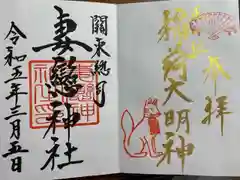 奉拝
稲荷大明神
關東総司
妻戀神社
令和五年三月五日